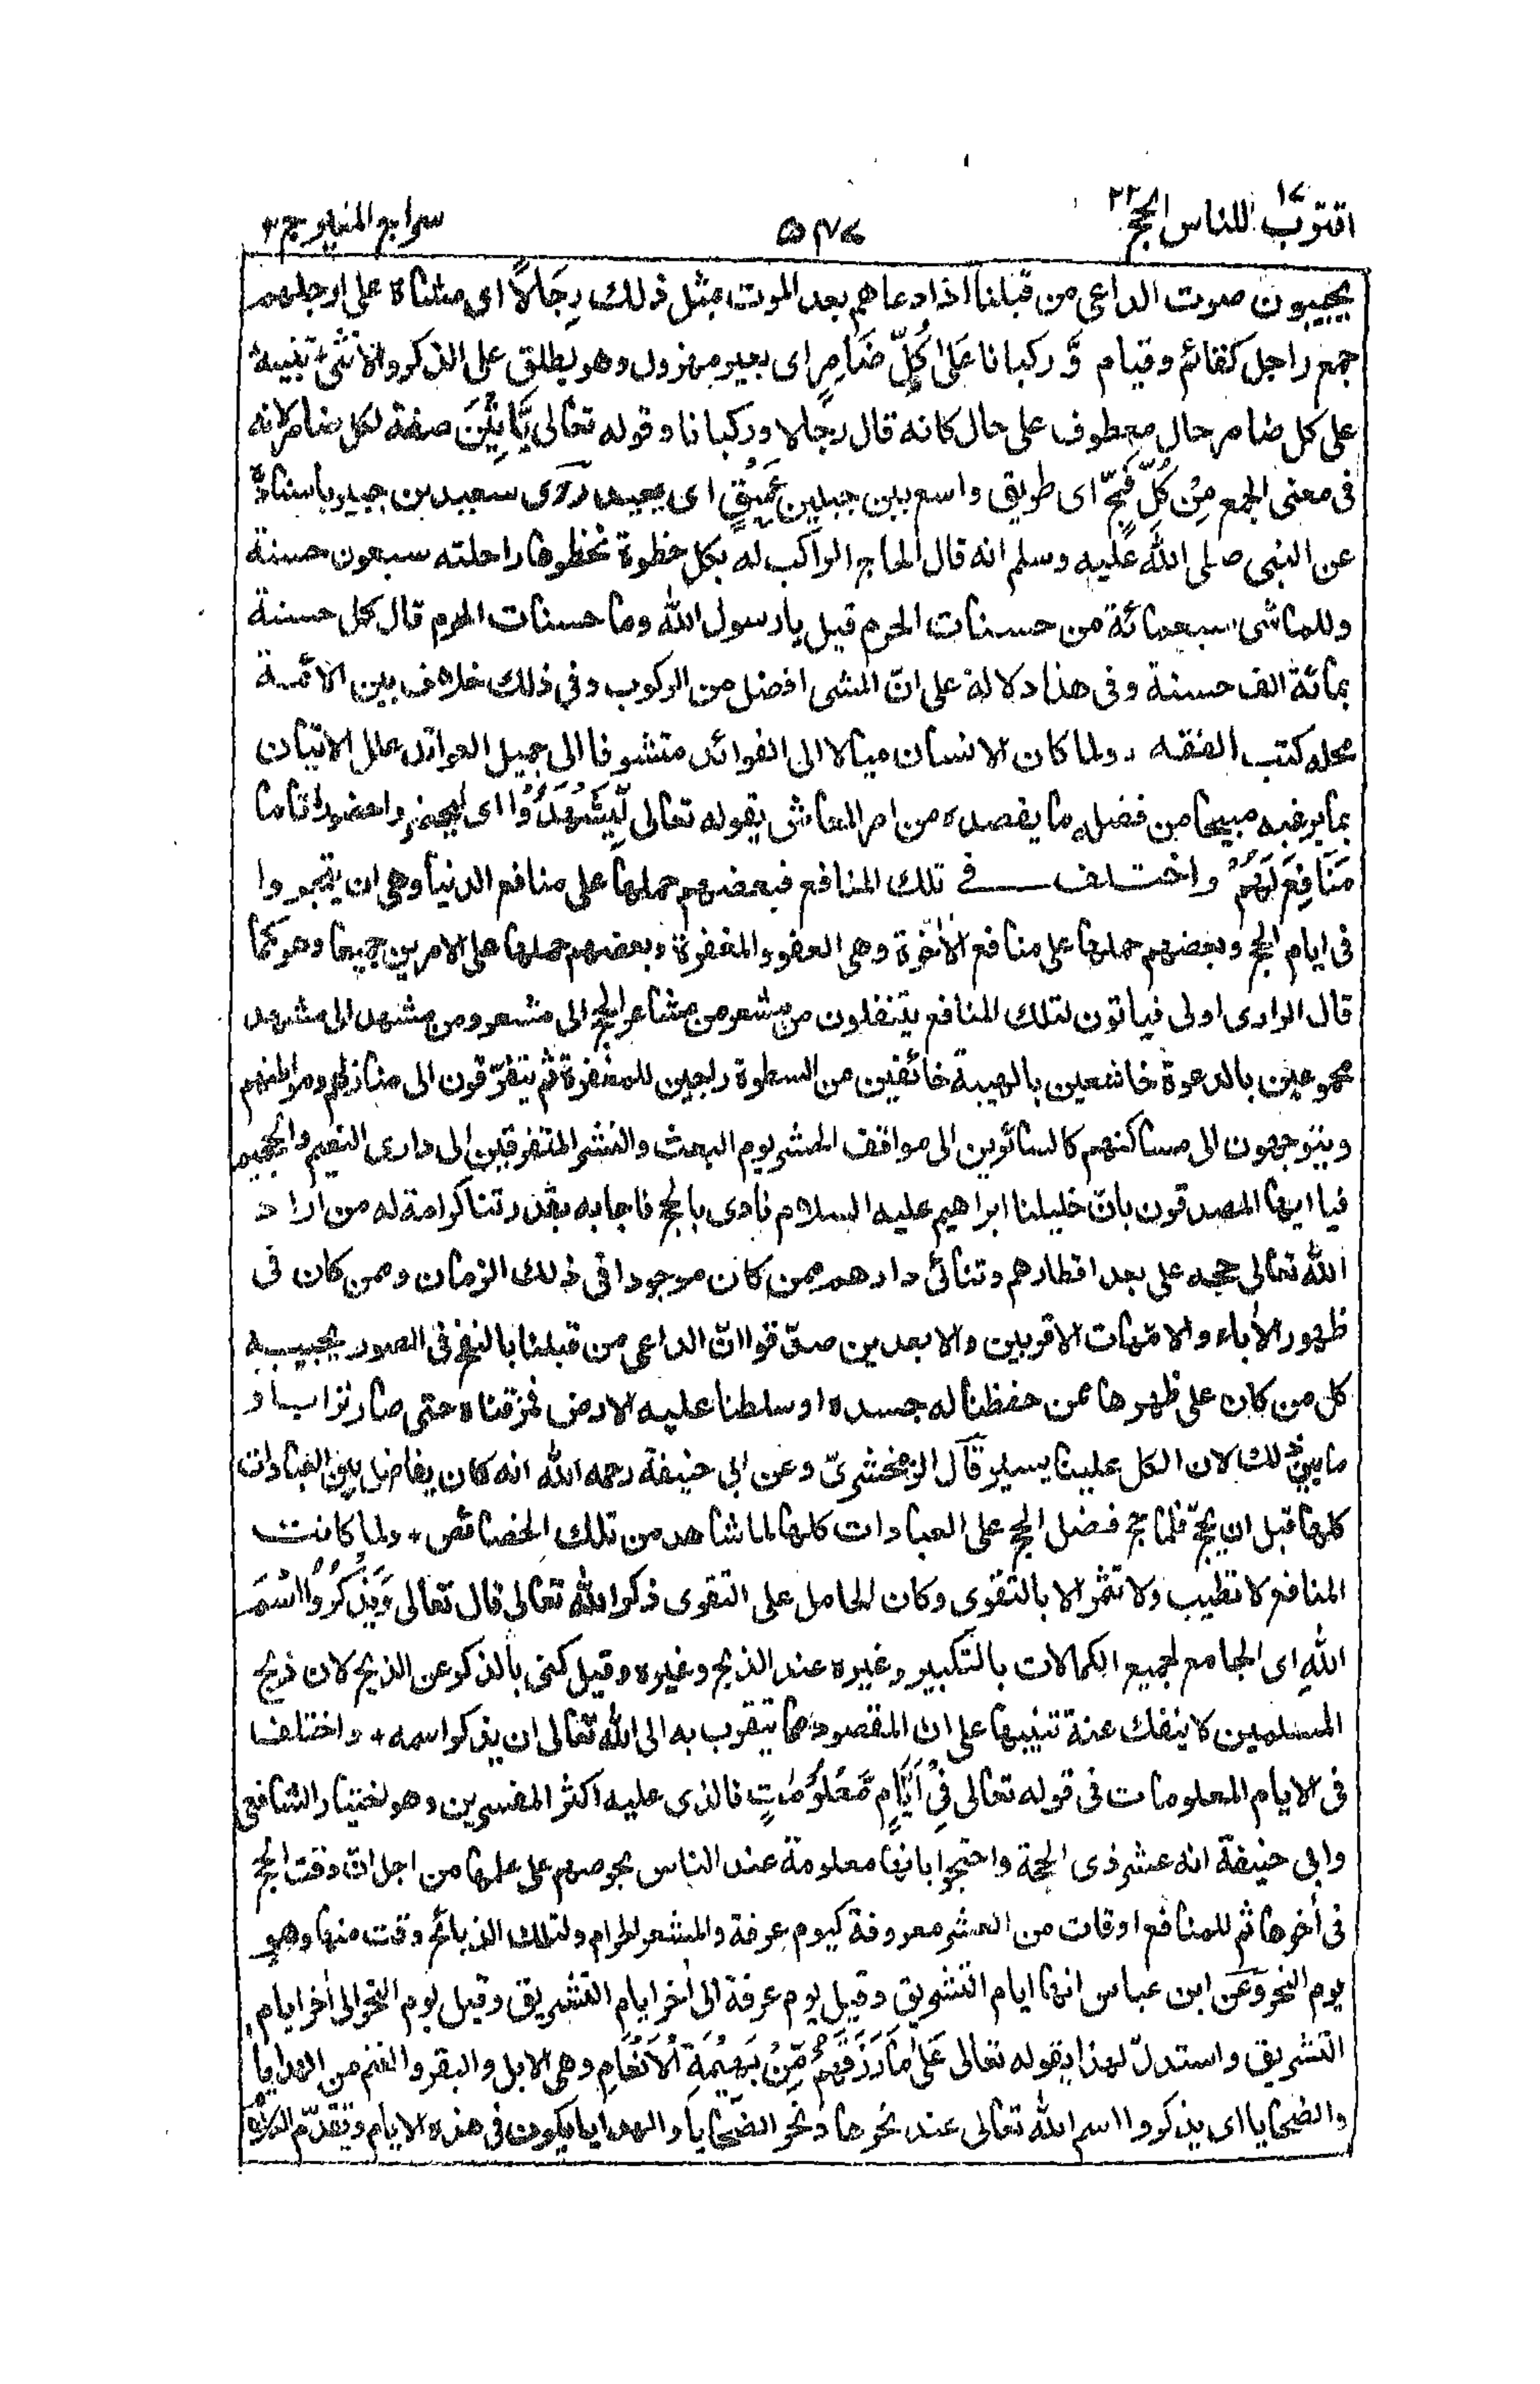 اقترب للناس ١٧ الحج ٢٢
٥٤٧
سراج المنير ج ٢
يجيبون صوت الداعى من قبلنا اذا دعاهم بعد الموت بمثل ذلك رِجَالًا اى مشاة على ارجلهم
جمع راجل كقائم وقيام وَّ ركبانا عَلٰى كُلِّ ضَامِرٍ اى بعير مهزول وهو يطلق على الذكر والانثى تنبيه
على كل ضامر حال معطوف على حال كانه قال رجالا وركبانا وقوله تعالى يَّاْتِيْنَ صفة لكل ضامر لانه
فى معنى الجمع مِنْ كُلِّ فَجٍّ اى طريق واسع بين جبلين عَمِيْقٍ اى بعيد روى سعيد بن جبير باسناده
عن النبى صلى الله عليه وسلم انه قال الحاج الراكب له بكل خطوة تخطوها راحلته سبعون حسنة
وللماشى سبعمائة من حسنات الحرم قيل يا رسول الله وما حسنات الحرم قال كل حسنة
بمائة الف حسنة وفى هذا دلالة على انّ المشى افضل من الركوب وفى ذلك خلاف بين الائمة
محله كتب الفقه ولما كان الانسان ميالا الى الفوائد متشوفا الى جميل العوائد علل الاتيان
بما يرغبه مبيحا من فضله ما يقصده من امر المعاش بقوله تعالى لِّيَشْهَدُوْا اى ليحضروا حضورا تاما
مَنَافِعَ لَهُمْ واختلف فى تلك المنافع فبعضهم حملها على منافع الدنيا وهى ان يتجروا
فى ايام الحج وبعضهم حملها على منافع الأخرة وهى العفو والمغفرة وبعضهم حملها على الامرين جميعا وهو كما
قال الرازى اولى فيأتون لتلك المنافع يتنقلون من مشعر من مشاعر الحج الى مشعر ومن مشهد الى مشهد
مجموعين بالدعوة خاشعين بالهيبة خائفين من السطوة راجين للمغفرة ثم يتفرّقون الى منازلهم ومواطنهم
ويتوجهون الى مساكنهم كالسائرين الى مواقف الحشر يوم البعث والنشر المتفرقين الى دارى النعيم والجحيم
فيا ايها المصدقون بانّ خليلنا ابراهيم عليه السلام نادى بالحج فاجابه بقدرتنا كرامة له من اراد
الله تعالى حجه على بعد اقطارهم وتنائى دارهم ممن كان موجودا فى ذلك الزمان وممن كان فى
ظهور الأباء والامّهات الاقربين والابعدين صدّقوا انّ الداعى من قبلنا بالنفخ فى الصور يجيبه
كل من كان على ظهرها ممن حفظنا له جسده او سلطنا عليه الارض فمزقناه حتى صار ترابا و
ما بين ذلك لان الكل علينا يسير قال الزمخشرىّ وعن ابى حنيفة رحمه الله انه كان يفاضل بين العبادات
كلها قبل ان يحجّ فلما حج فضل الحج على العبادات كلها لما شاهد من تلك الخصائص ولما كانت
المنافع لا تطيب ولا تثمر الا بالتقوى وكان الحامل على التقوى ذكر الله تعالى قال تعالى وَيَذْكُرُوا اسْمَ
اللهِ اى الجامع لجميع الكمالات بالتكبير وغيره عند الذبح وغيره وقيل كنى بالذكر عن الذبح لان ذبح
المسلمين لا ينفك عنه تنبيها على ان المقصود مما يتقرب به الى الله تعالى ان يذكر اسمه واختلف
فى الايام المعلومات فى قوله تعالى فِىْ اَيَّامٍ مَّعْلُوْمٰتٍ فالذى عليه اكثر المفسرين وهو اختيار الشافعى
وابى حنيفة انه عشر ذى الحجة واحتجوا بانها معلومة عند الناس بحرصهم على علمها من اجل انّ وقت الحج
فى أخرها ثم للمنافع اوقات من العشر معروفة كيوم عرفة والمشعر الحرام ولتلك الذبائح وقت منها وهو
يوم النحر وعن ابن عباس انها ايام التشريق وقيل يوم عرفة الى أخر ايام التشريق وقيل يوم النحر الى أخر ايام
التشريق واستدلّ لهذا بقوله تعالى عَلٰى مَا رَزَقَهُمْ مِّنْۢ بَهِيْمَةِ الْاَنْعَامِ وهى الابل والبقر والغنم من الهدايا
والضحايا اى يذكروا اسم الله تعالى عند نحرها ونحر الضحايا والهدايا يكون فى هذه الايام وتقدّم الكلام